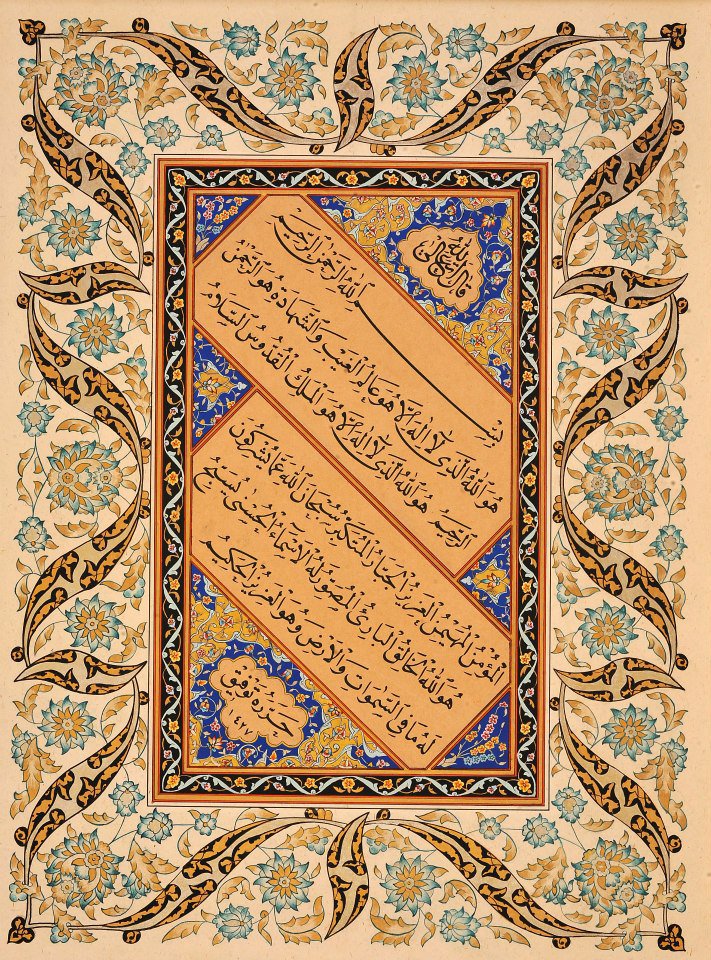 قال الله تعالى
بسم الله الرحمن الرحيم
هو الله الذي لا اله الا هو عالم الغيب والشهادة هو الرحمن
الرحيم هو الله الذي لا اله الا هو الملك القدوس السلام
المؤمن المهيمن العزيز الجبار المتكبر سبحان الله عما يشركون
هو الله الخالق البارئ المصور له الاسماء الحسنى يسبح
له ما في السموات والارض وهو العزيز الحكيم
حرره توفيق